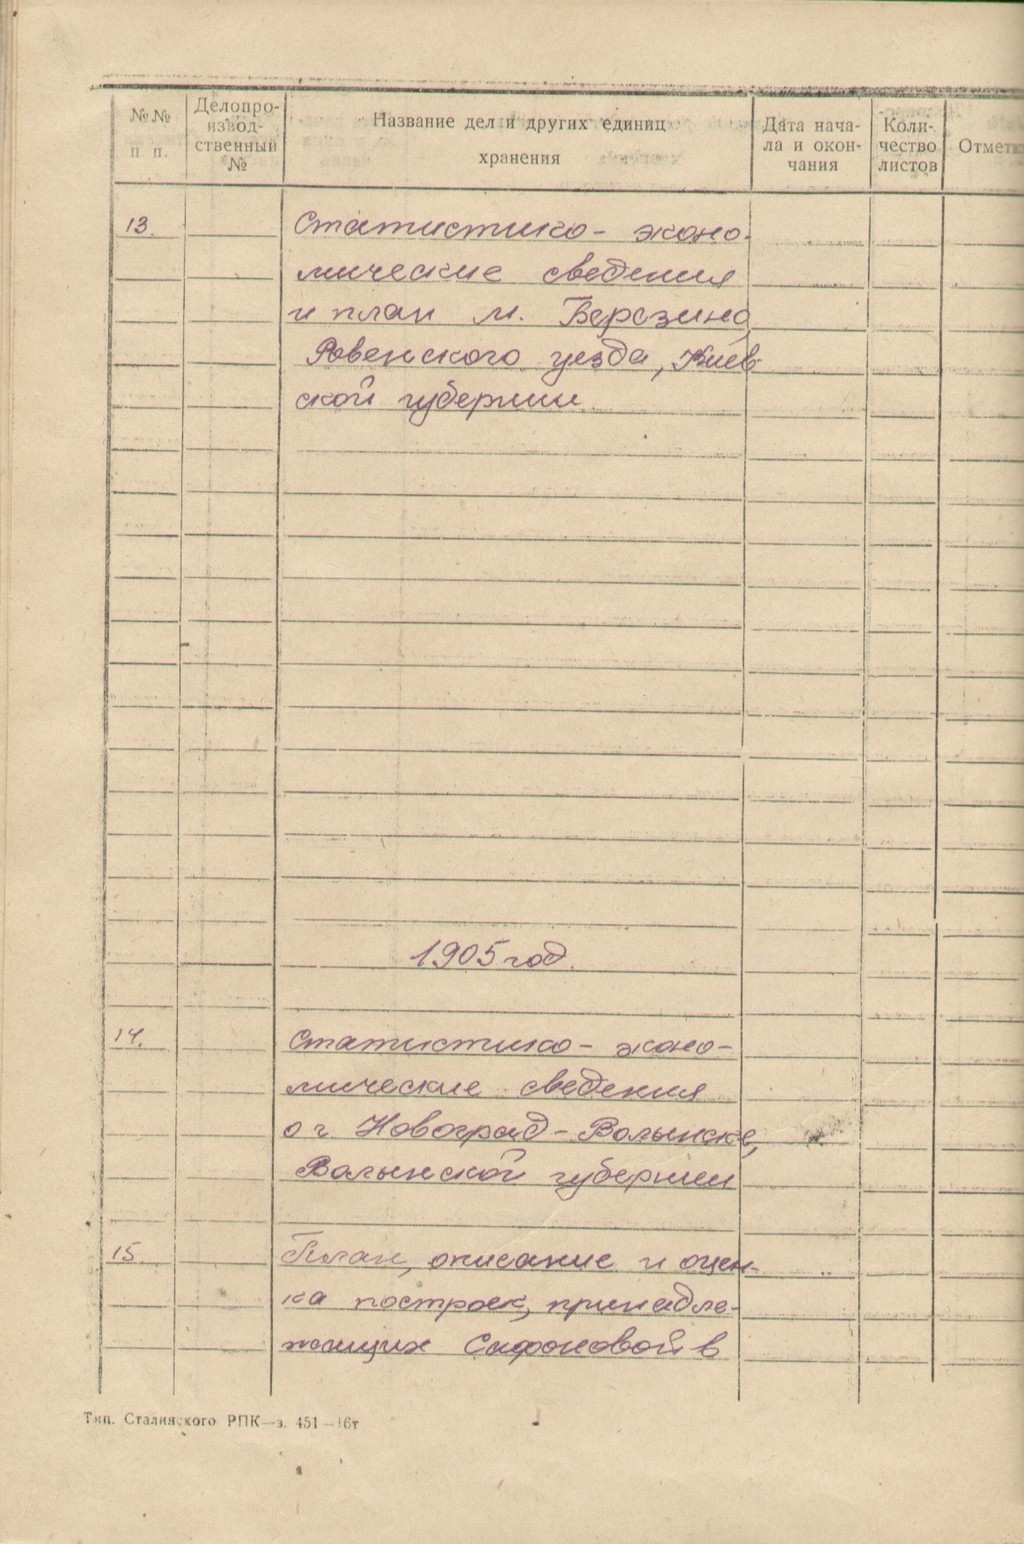 №№ п. п.
Делопро-
извод-
ственный
№
Название дел и других единиц
хранения
Дата нача-
ла и окон-
чания
Коли-
чество
листов
Отметк
13.
Статистико- эконо-
мические сведения
и план м. Березино,
Ровенского уезда, Киев-
ской губернии.
1905 год.
14.
Статистико- эконо-
мические сведения
о г. Новоград-Волынске,
Волынской губернии
15.
План, описание и оцен-
ка построек, принадле-
жащих Сафоновой в
Тип. Сталинского РПК—з. 451—16т